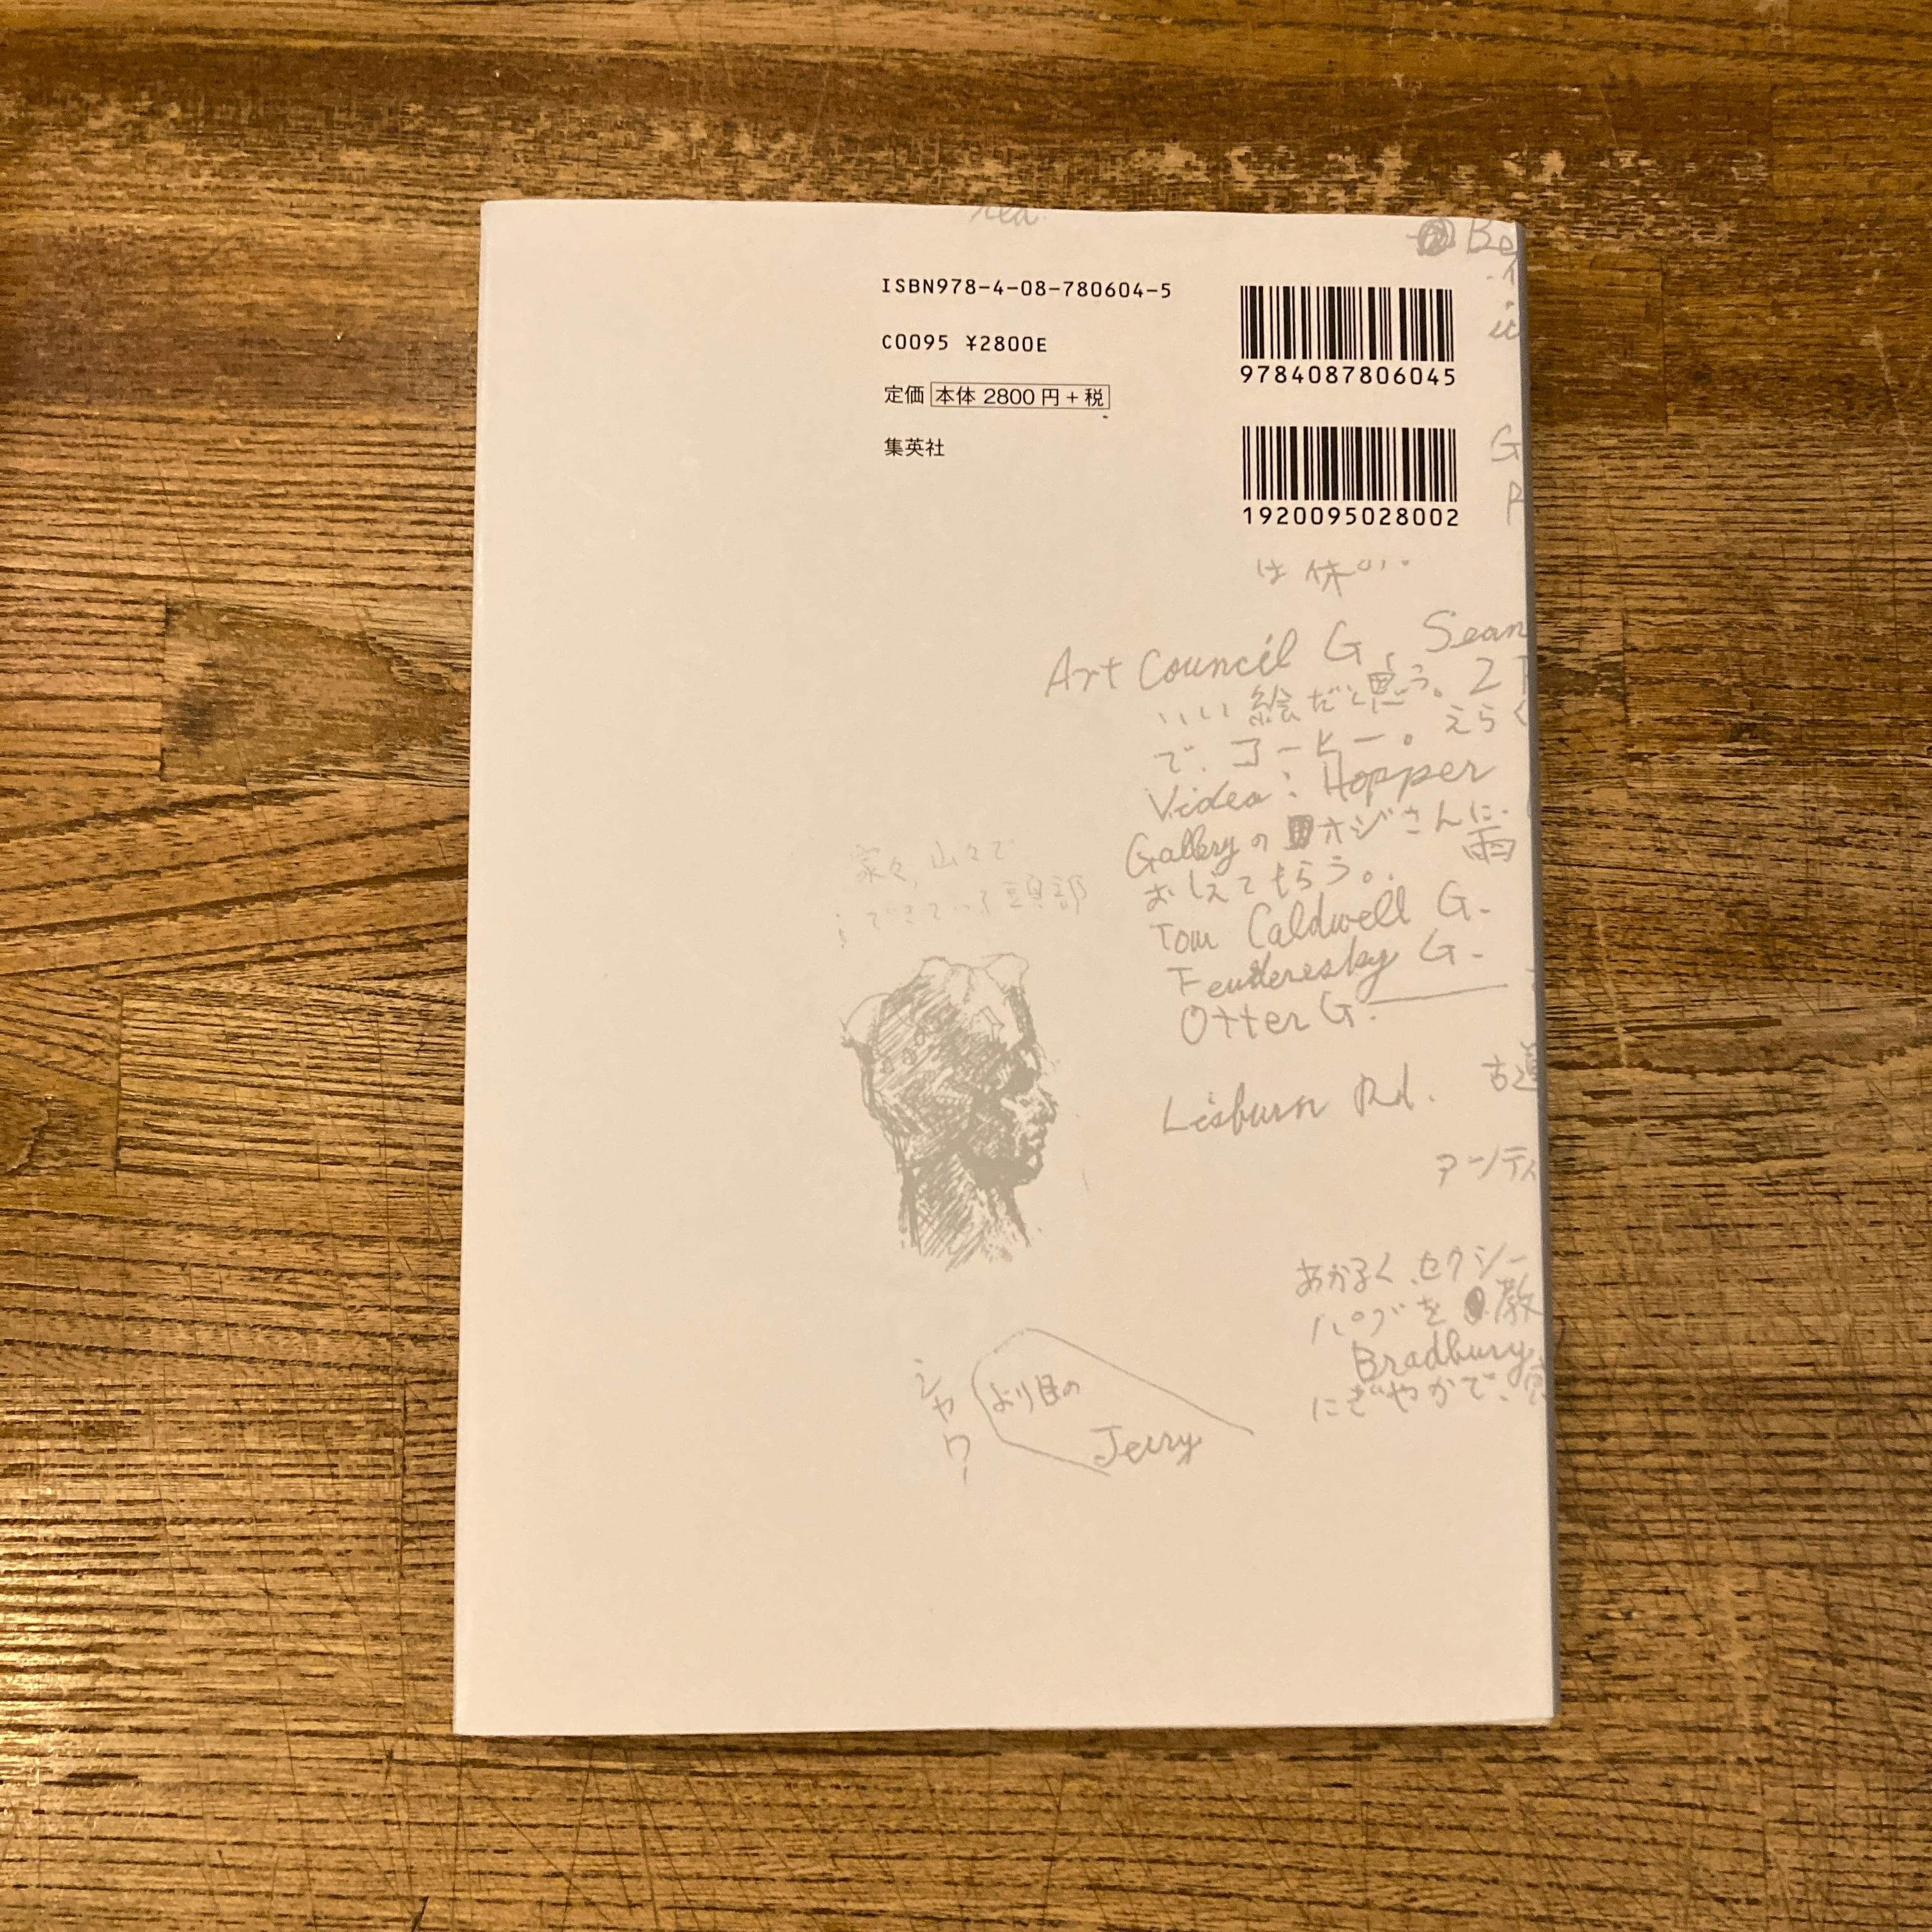 ISBN978-4-08-780604-5
C0095 ¥2800E
定価 本体 2800 円 + 税
集英社
9784087806045
1920095028002
Art Council G. Sean
いい絵だと思う。2
で、コーヒー。えらく
Video : Hopper
Galleryのオジさんに
雨
おしえてもらう。
Tom Caldwell G.
G.
Otter G.
Lisburn Rd. 古道
アンティ
家々、山々で
できている頭部
あかるく、セクシー
パブを 教
Bradbury
にぎやかで、
シャワー
より目の
Jerry